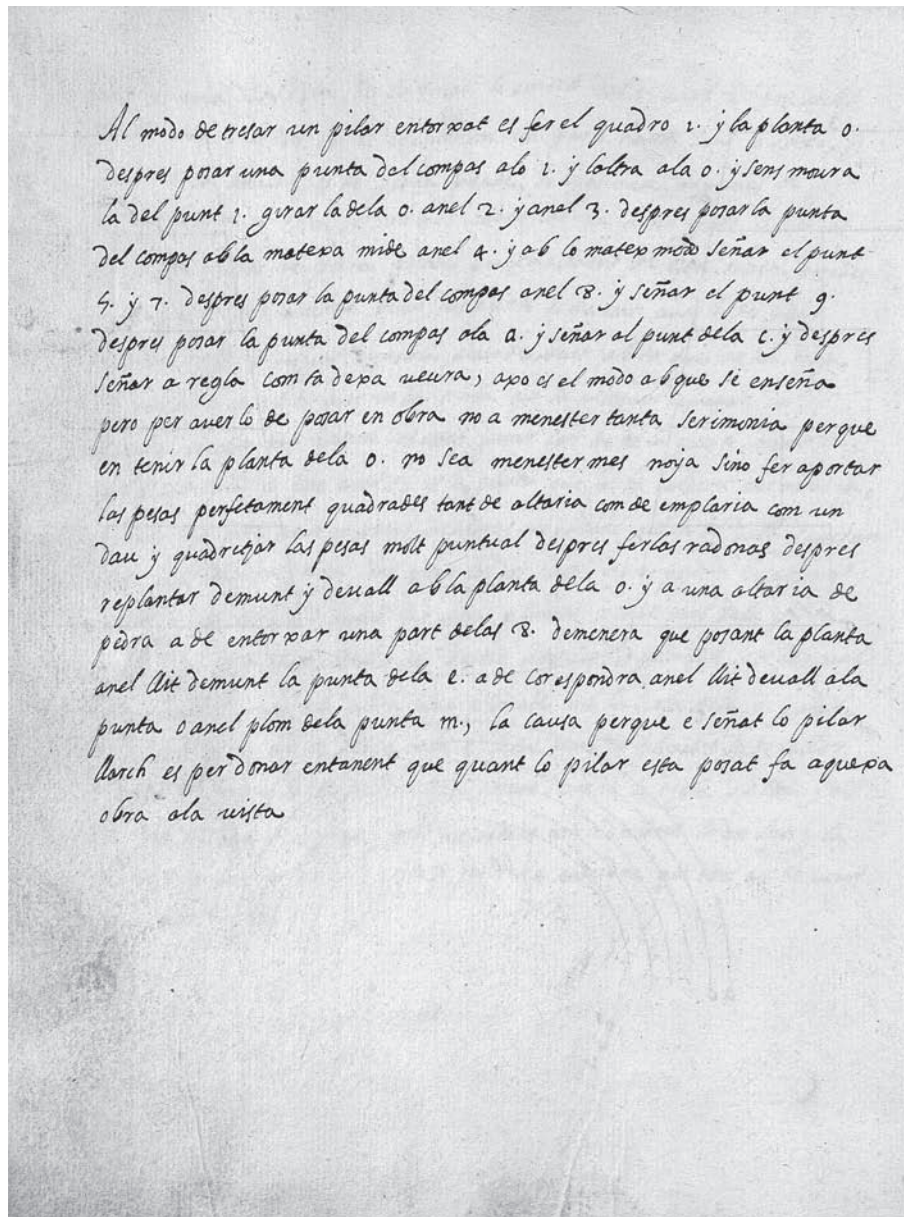 Al modo de tresar un pilar entorxat es fer el quadro 1. y la planta o.
despres posar una punta del compas alo 1. y laltra ala o. y sens moura
la del punt 1. girar la dela o. anel 2. y anel 3. despres posar la punta
del compas ab la matexa mide anel 4. y ab lo matex modo señar el punt
5. y 7. despres posar la punta del compas anel 8. y señar el punt 9.
despres posar la punta del compas ala a. y señar al punt dela c. y despres
señar a regla com ta dexa veura, axo es el modo ab que se enseña
pero per averlo de posar en obra no a menester tanta serimonia perque
en tenir la planta dela o. no sea menester mes noja sino fer aportar
las pesas perfetament quadrades tant de altaria com de emplaria com un
dau y quadretjar las pesas molt puntual despres ferlas radonas despres
replantar demunt y devall ab la planta dela o. y a una altaria de
pedra a de entorxar una part delas 8. demenera que posant la planta
anel llit demunt la punta dela e. a de corespondra anel llit devall ala
punta o anel plom dela punta m., la causa perque e señat lo pilar
llarch es per donar entanent que quant lo pilar esta posat fa aquexa
obra ala vista